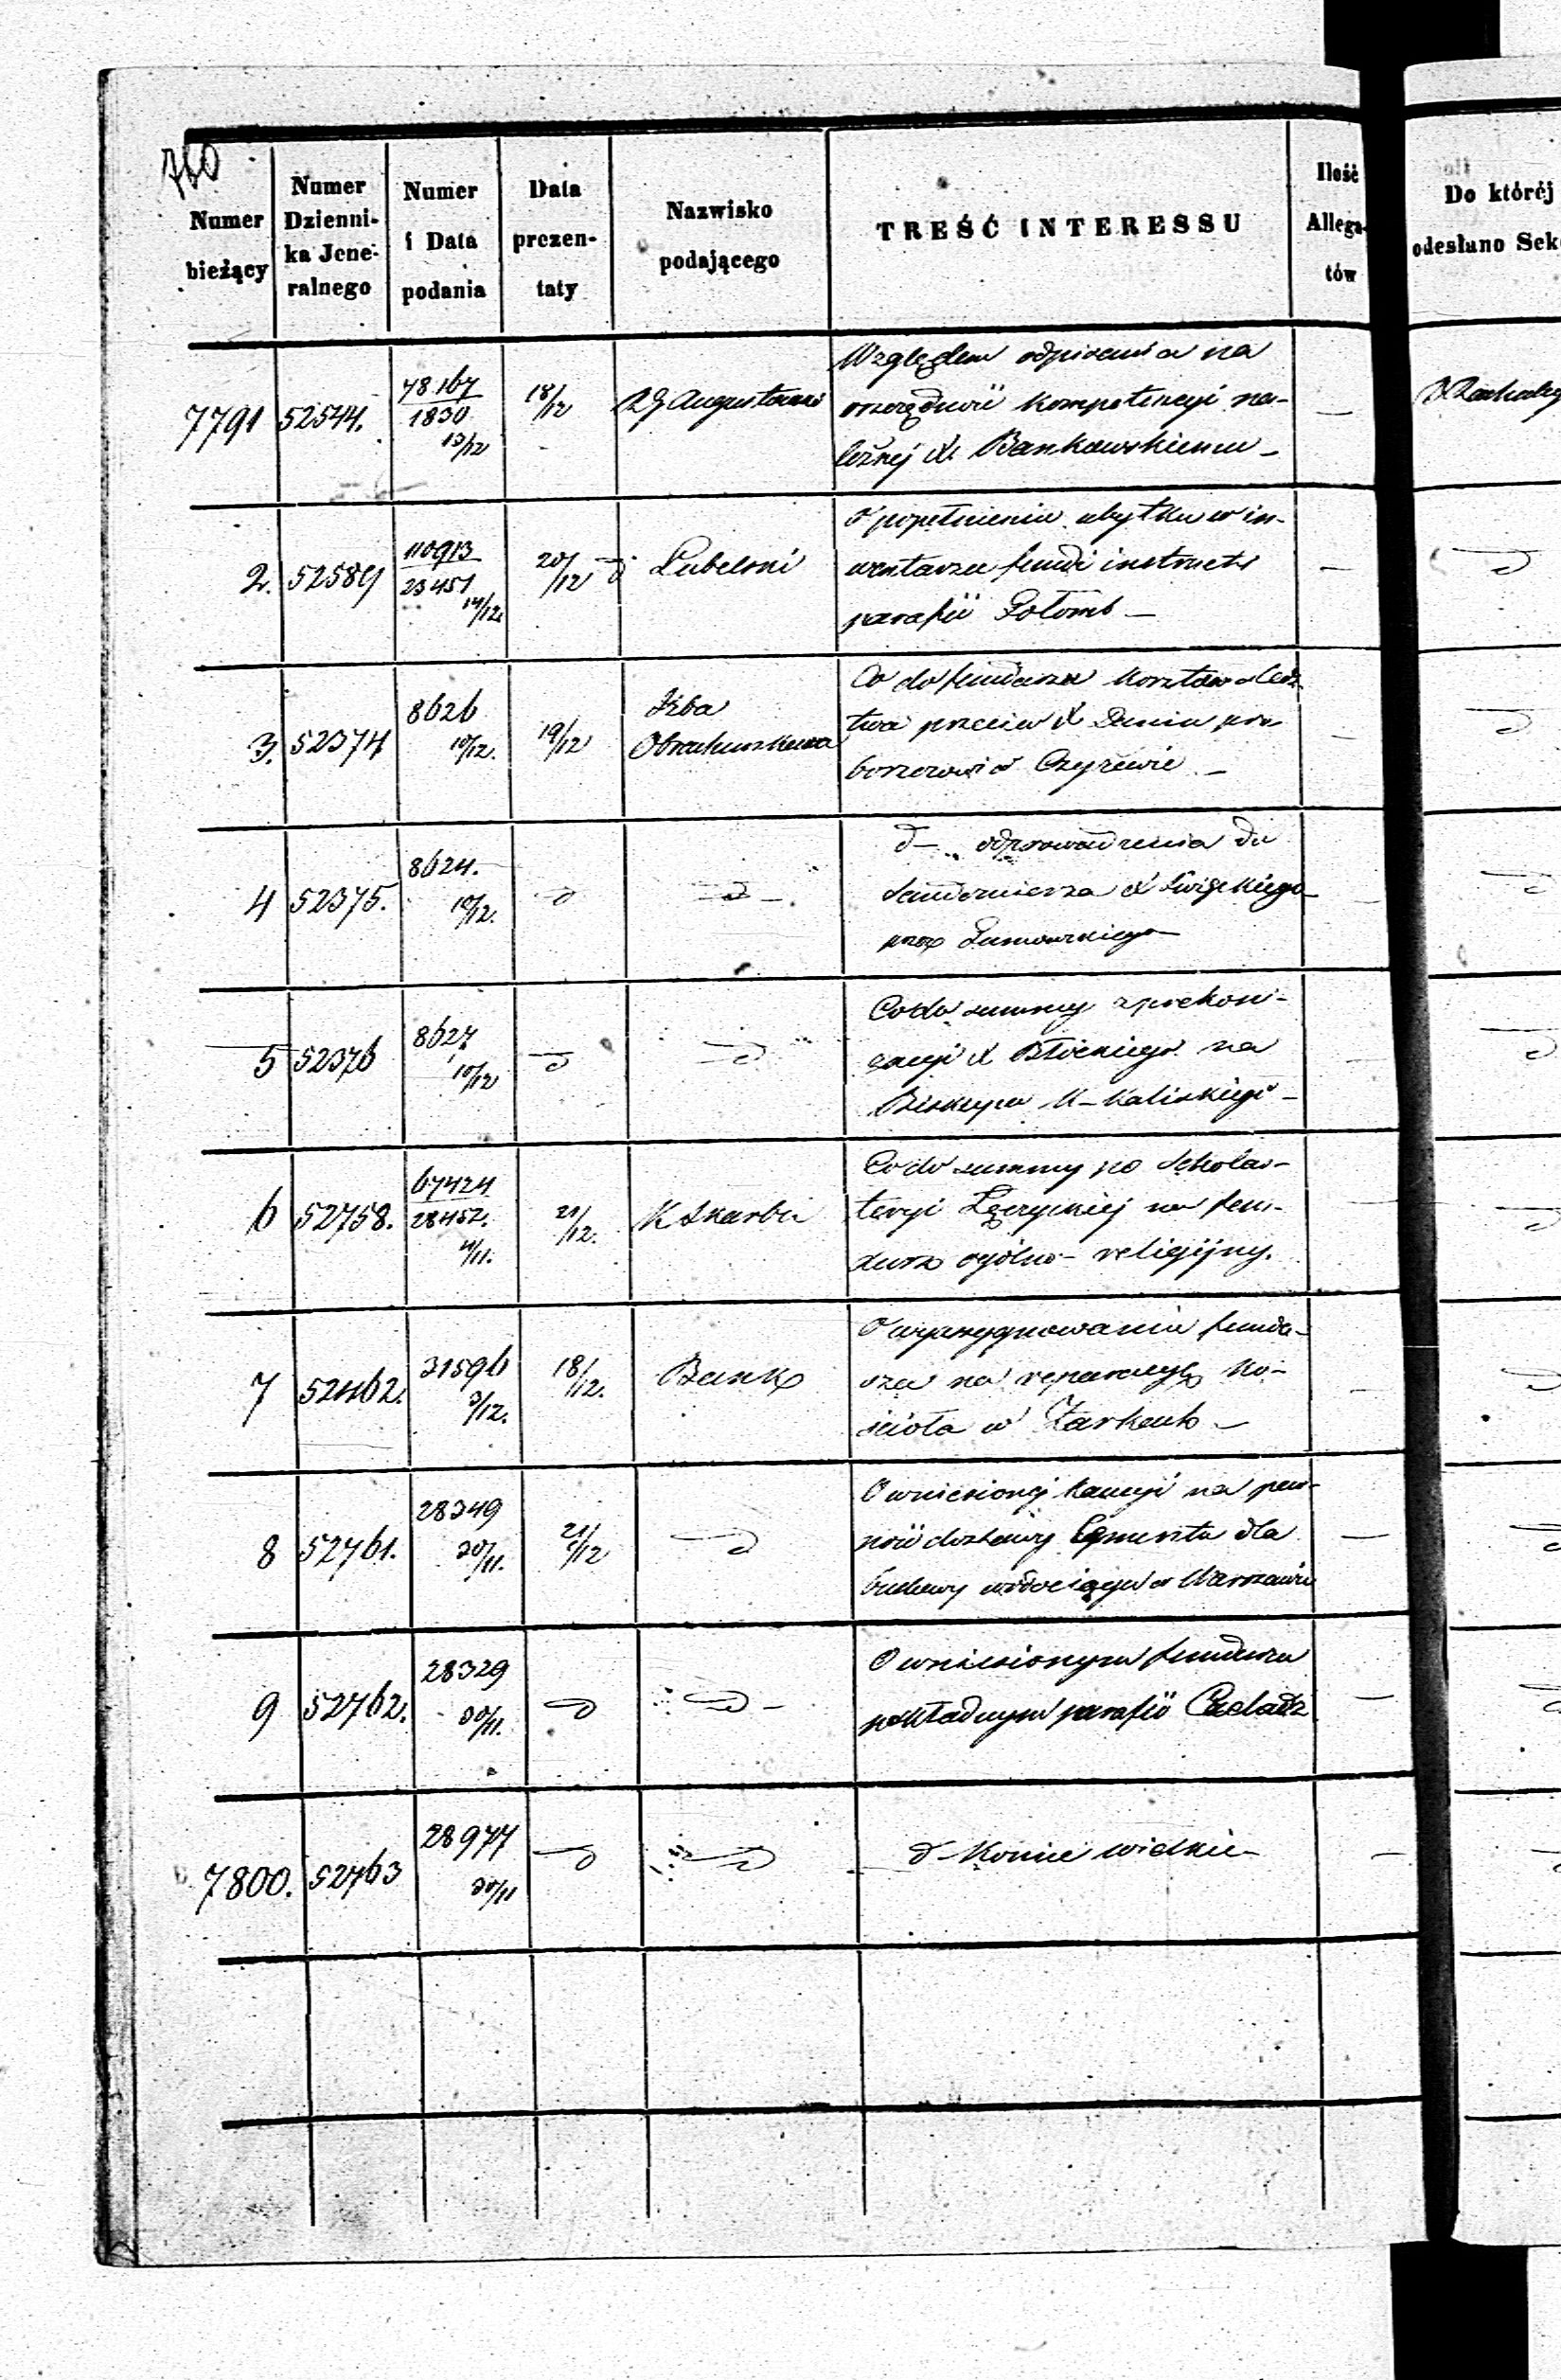 760
Numer bieżący
Numer Dzienni- ka Jene- ralnego
Numer i Data podania
Data prezen- taty
Nazwisko podającego
TREŚĆ INTERESSU
Ilość Allega- tów
Do któréj
odesłano Sek
7791 52544. 78167 1830 13/12 18/12 RG Augustowski
Względem odpisania na
oszczędność kompetencyi na-
leżnéj X. Bankowskiemu –
2. 52589 110913 23451 14/12. 20/12 d Lubelski
O popełnieniu ubytku w in-
wentarzu fundi instructi
parafii Gołomb –
3. 52374 8626 10/12. 19/12 Izba Obrachunkowa
Co do funduszu kosztów
twa przeciw X
boszczowi w Czyżewie –
4 52375. 8624. 10/12. d d
d – odprowadzenia do
Sandomierza X
przez
5 52376 8627 10/12 d d
Co do summy z prekoni-
zacyi X na
Biskupa K–Kaliskiego –
6 52758. 67424 28452. 4/11. 21/12. K Skarbu
Co do summy po Scholas-
teryi Łęczyckiéj na fun-
dusz ogólno – religijny.
7 52462. 31596 3/12. 18/12. Bank
O wyasygnowaniu fundu-
szu na reparacyę Ko-
ścioła w Żarkach –
8 52761. 28349 30/11. 21/12 d
O wniesionej kaucyi na pew-
ność dostawy Cementu dla
budowy wodociągu w Warszawie
9 52762. 28329 30/11. d d
O wniesionym funduszu
pokładnym parafii Czeladz
7800. 52763 28977 30/11 d d
d – Konie wielkie –